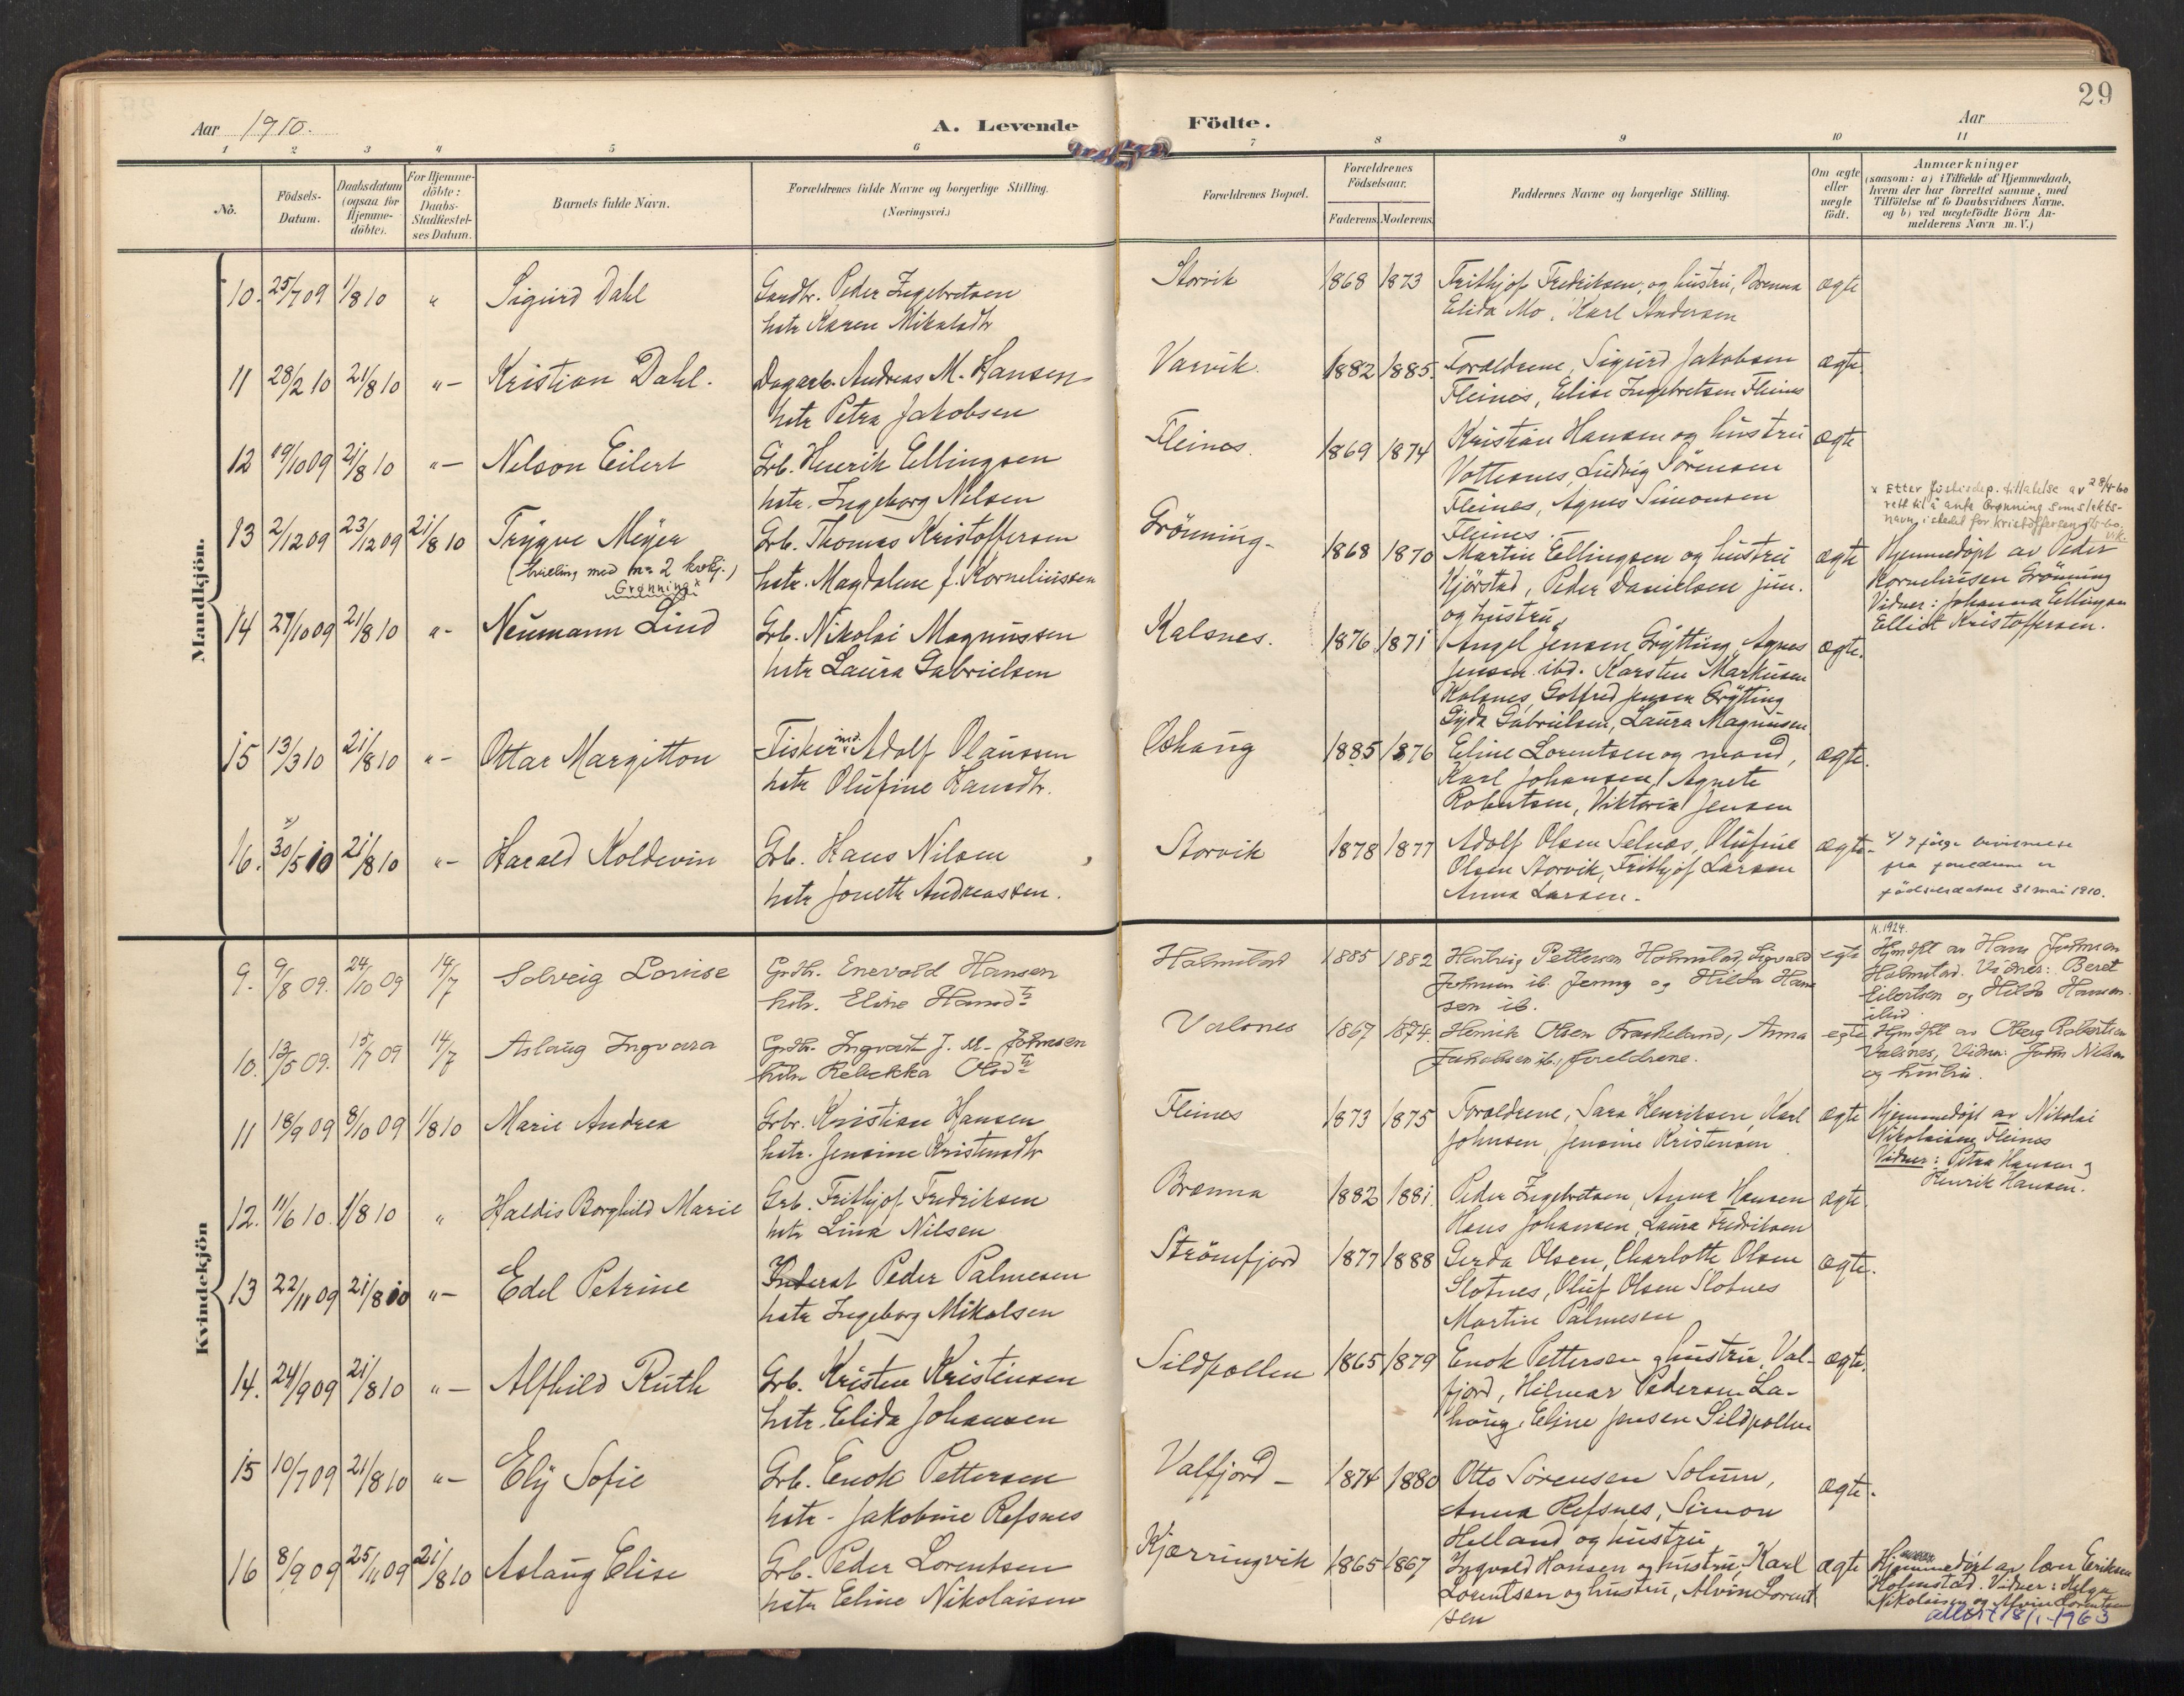 29
Aar 1910.
A. Levende Födte.
Aar
1 2 3 4 5 6 7 8 9 10 11
No.
Födsels-
Datum.
Daabsdatum
(ogsaa for
Hjemme-
döbte).
For Hjemme-
döbte:
Daabs-
Stadfæstel-
ses Datum.
Barnets fulde Navn.
Forældrenes fulde Navne og borgerlige Stilling.
(Næringsvei.)
Forældrenes Bopæl.
Forældrenes
Födselsaar.
Faderens. Moderens.
Faddernes Navne og borgerlige Stilling.
Om ægte
eller
uægte
födt.
Anmærkninger
(saasom: a) i Tilfælde af Hjemmedaab,
hvem der har forrettet samme, med
Tilföielse af to Daabsvidners Navne.
og b) ved uægtefödte Börn An-
melderens Navn m. V.)
Mandkjön.
10. 25/7 09 1/8 10 " Sigurd Dahl
Gaardbr. Peder Ingebretsen
hstr Karen Mikalsdtr
Storvik 1868 1873
Frithjof Fredriksen, og hustru, Brenna
Elida Mo, Karl Andersen
ægte
11 28/2 10 21/8 10 "- Kristian Dahl.
Dagarb. Andreas M. Hansen
hstr Petra Jakobsen
Varvik. 1882 1885.
Forældrene, Sigurd Jakobsen
Fleines, Elise Ingebretsen Fleines
ægte
12 19/10 09 21/8 10 "- Nelson Eilert
Grb. Henrik Ellingsen
hstr. Ingeborg Nilsen
Fleines. 1869 1874
Kristian Hansen og hustru
Vottesnes, Ludvig Sörensen
Fleines, Agnes Simonsen
Fleines.
ægte
13 2/12 09 23/12 09 21/8 10 Trygve Meyer
(tvilling med nr 2 kvkj.)
Grønning x
Grb. Thomas Kristoffersen
hstr. Magdalene f. Korneliussen
Grönning- 1868 1870
Martin Ellingsen og hustru
Kjörstad, Peder Danielsen jun.
og hustru,
ægte
x Etter justisdep. tillatelse av 28/4-60
rett til å anta Grønning som slekts-
navn i stedet for Kristoffersen
Hjemmedöpt av Peder
Korneliusen Grönning
Vidner: Johanna Ellingsen
Elliot Kristoffersen.
14 27/10 09 21/8 10 "- Neumann Lind
Grb. Nikolai Magnussen
hstr Laura Gabrielsen
Kalsnes. 1876 1871
Angel Jensen Grytting, Agnes
Jensen ibd. Karsten Markusen
Kalsnes, Gotfred Jensen Grytting
Gyda Gabrielsen, Laura Magnusen
ægte.
15 13/3 10 21/8 10 "- Ottar Margitton
Fisker Adolf Olaussen
hstr Olufine Hansdtr.
1885 1876
Eline Lorentsen og mand,
Karl Johansen, Agnete
Robertsen, Viktoria Jensen
ægte.
16. x 30/5 10 21/8 10 "- Harald Koldevin
Grb. Hans Nilsen
hstr Jonette Andreassen.
Storvik 1878 1877
Adolf Olsen Selnes, Olufine
Olsen Storvik, Frithjof Larsen
Anna Larsen.
ægte.
fra foreldrene er
födselsdatoen 31 mai 1910.
K. 1924.
Kvindekjön
9. 9/8 09. 24/10 09 14/7 Solveig Lovise
Grdbr. Enevold Hansen
hstr. Eline Hansdtr
Holmstad 1885 1882
Hedvig Pettersen Holmstad, Sigvald
Johnsen ib. Jenny og Hilda Han
sen ib.
egte
Hjmdöbt av Hans Johnsen
Holmstad. Vidner: Beret
Eilertsen og Hilda Hansen
ibid.
10. 13/5 09. 15/7 09 14/7 Aslaug Ingvara
Grdbr. Ingvart J. M. Johnsen
hstr Rebekka Olsdtr
Valsnes 1867 1874.
Henrik Olsen Frøskeland, Anna
Jakobsen ib., foreldrene.
egte
Hjmdöbt av Oberg Robertsen
Valsnes, Vidner: John Nilsen
og hustru.
11 18/9 09 8/10 09 1/8 10 Marie Andrea
Grbr. Kristian Hansen
hstr. Jensine Kristensdtr
Fleines 1873 1875
Forældrene, Sara Henriksen, Karl
Johnsen, Jensine Kristensen
ægte
Hjemmedöpt av Nikolai
Nikolaisen Fleines
Vidner: Petra Hansen og
Henrik Hansen.
12. 11/6 10. 1/8 10 " Haldis Borghild Marie
Grb. Frithjof Fredriksen
hstr Lina Nilsen
Brenna 1882 1881.
Peder Ingebretsen, Anna Hansen
Hans Johansen, Laura Fredriksen
ægte.
13 22/11 09 21/8 10 "- Edel Petrine
Inderst Peder Palmesen
hstr Ingeborg Mikalsen
Strömfjord 1877 1888
Gerda Olsen, Charlotte Olsen
Slotnes, Oluf Olsen Slotnes
Martin Palmesen
ægte.
14. 24/9 09 21/8 10 "- Alfhild Ruth
Grb. Kristen Kristensen
hstr. Elida Johansen
Sildpollen 1865 1879
Enok Pettersen og hustru, Val-
fjord, Hilmar Pedersen La-
haug, Eline Jensen Sildpollen
ægte.
15 10/7 09 21/8 10 "- Ely Sofie
Grb. Enok Pettersen
hstr - Jakobine Refsnes
Valfjord - 1874 1880
Otto Sörensen Solum,
Anna Refsnes, Simon
Helland og hustru
ægte.
16 8/9 09 25/11 09 21/8 10 Aslaug Elise
Grb. Peder Lorentsen
hstr Eline Nikolaisen
Kjærringvik 1865 1867
Ingvald Hansen og hustru, Karl
Lorentsen og hustru, Alvin Lorent
sen
ægte
Hjemmedöpt av Eriksen
Holmstad. Vidner: Helga
Nikolaisen og Alvin Lorentsen
attest 18/1-1963